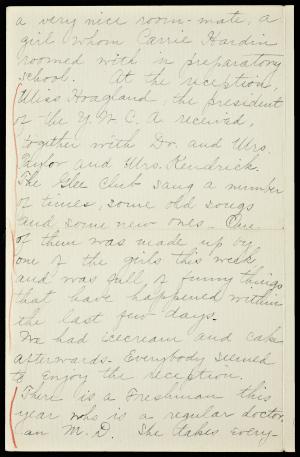 a very nice room-mate, a
girl whom Carrie Hardin
roomed with in preparatory
school. At the reception,
Miss Hoagland, the president
of the Y. W. C. A received,
together with Dr. and Mrs.
Taylor and Mrs. Kendrick.
The Glee Club sang a number
of times, some old songs
and some new ones. One
of them was made up by
one of the girls this week
and was full of funny things
that have happened within
the last few days.
We had icecream and cake
afterwards. Everybody seemed
to enjoy the reception.
There is a Freshman this
year who is a regular doctor,
an M.D. She takes every-